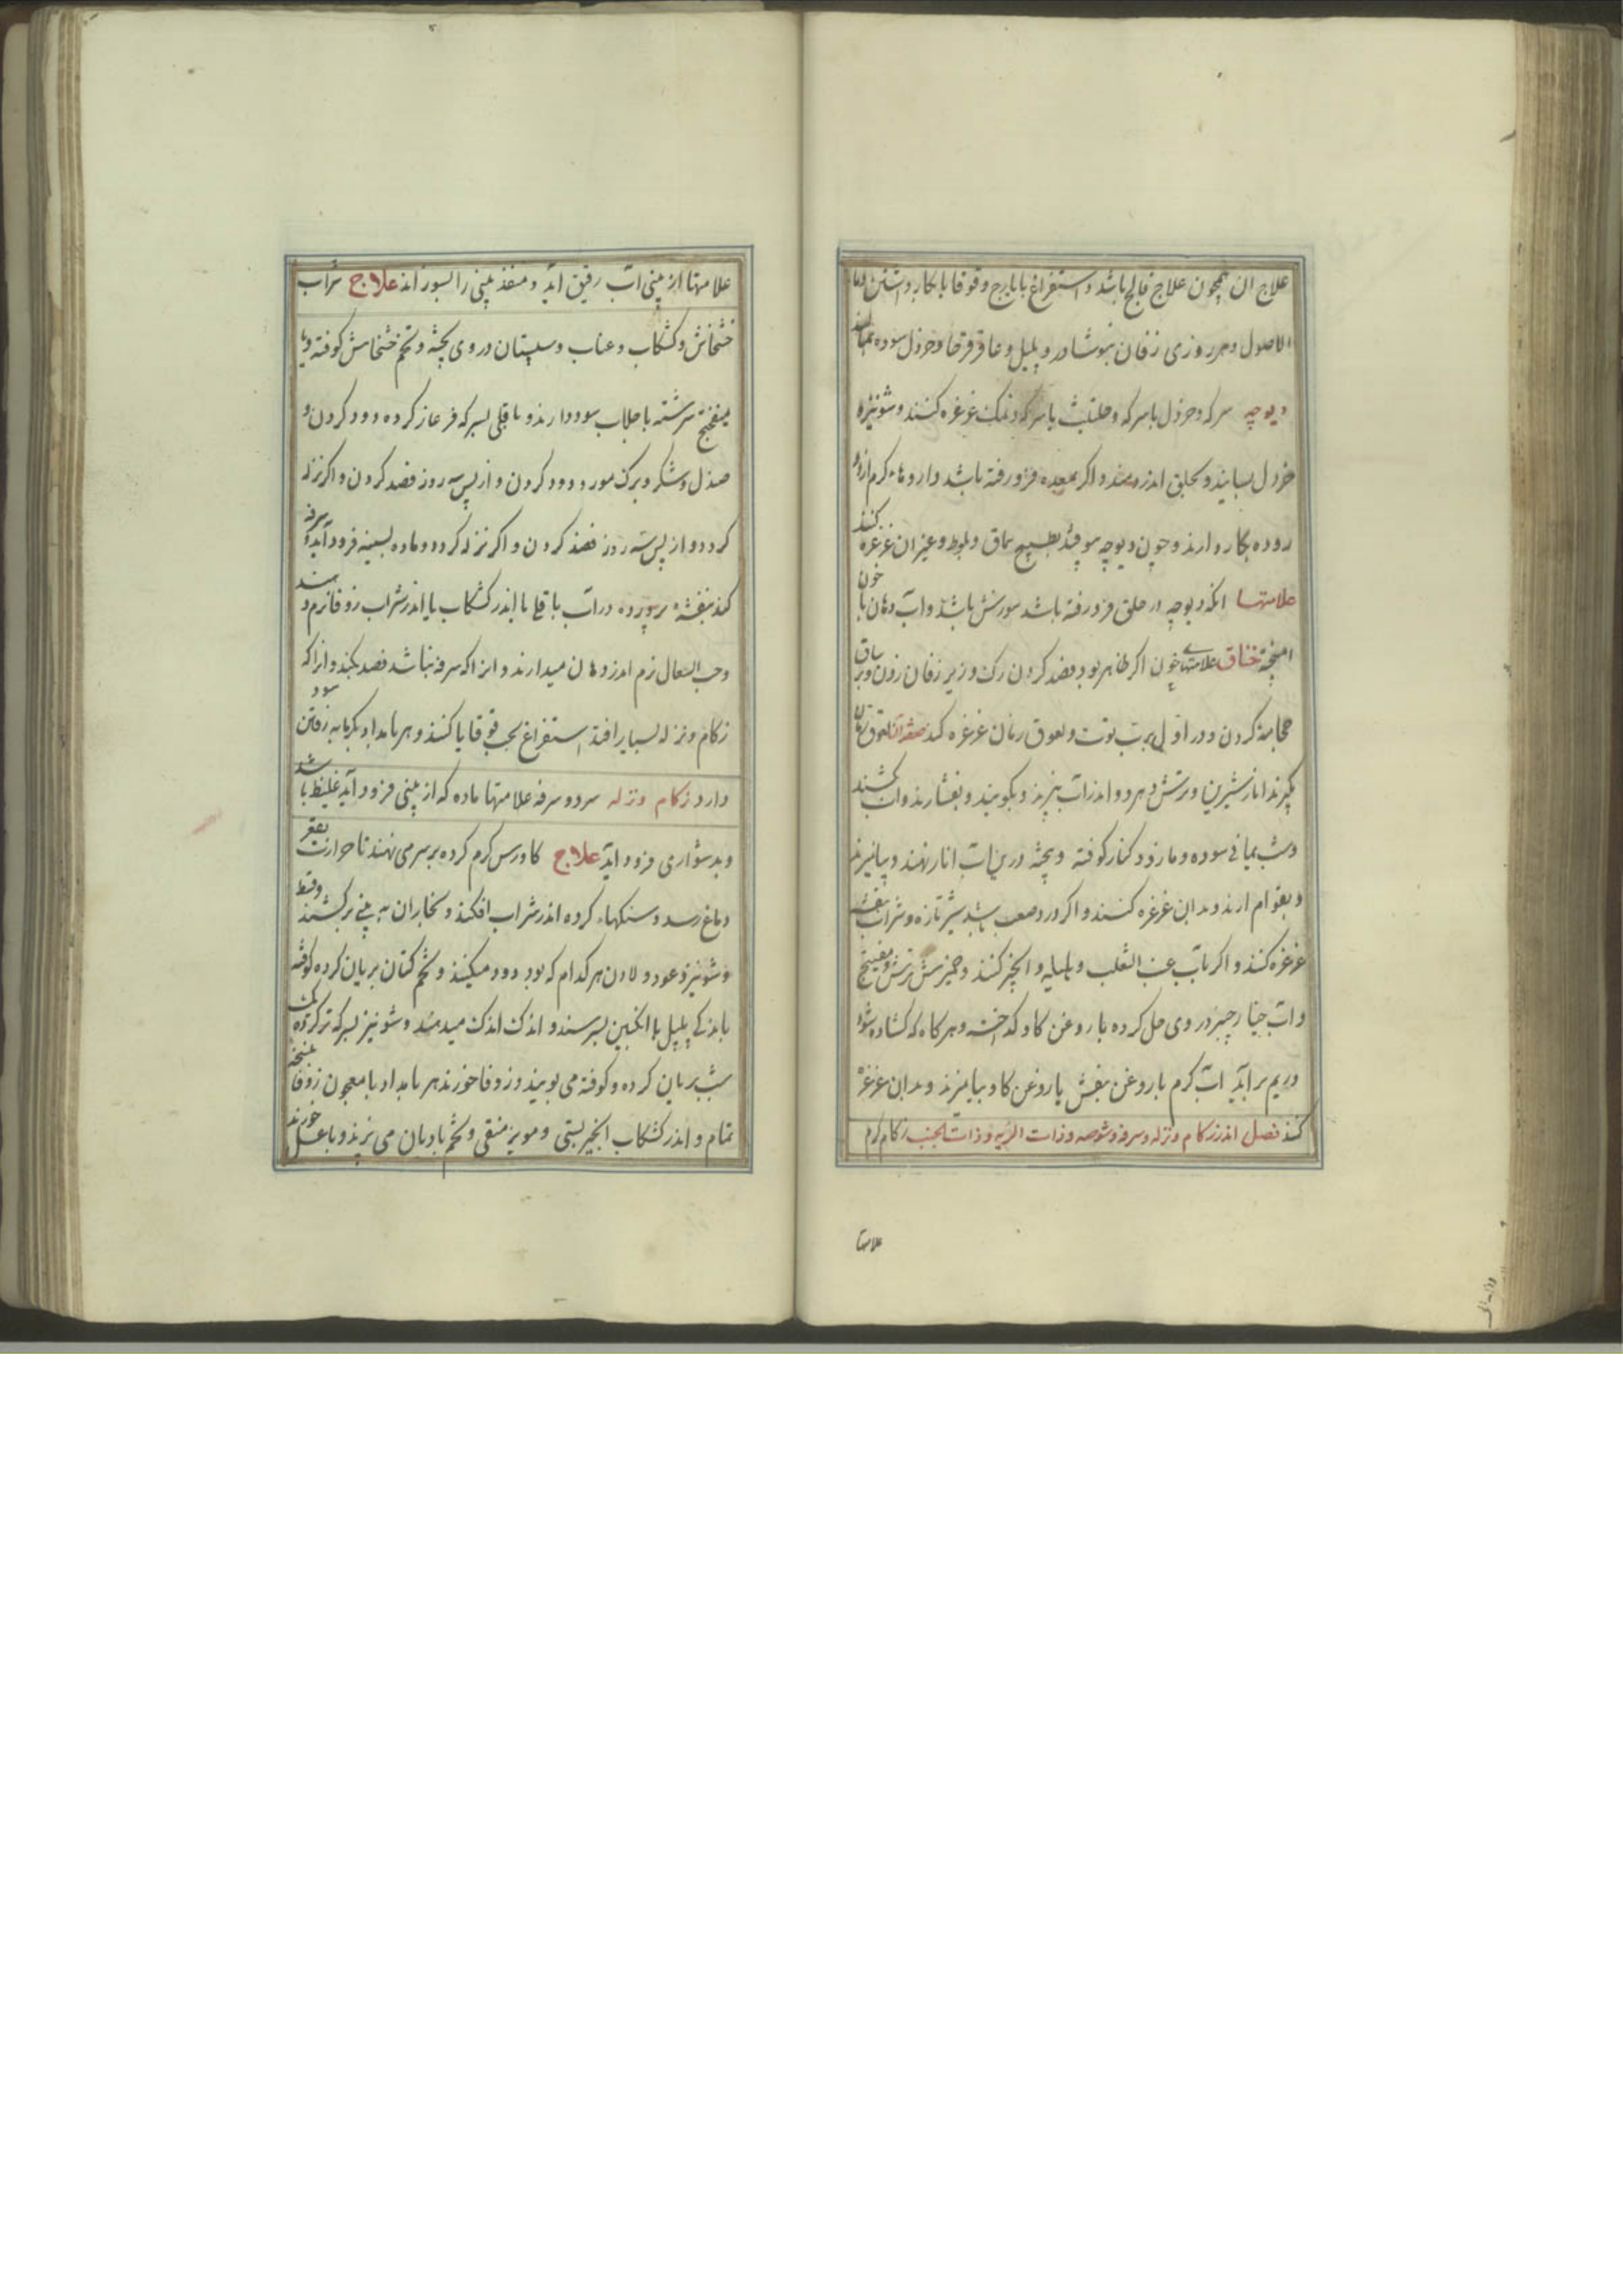 علاج ان همچون علاج فالج باشد و استفراغ با یارج و قوقایا بکار داشتن وما
الاصول و هر روزی زفان بنوشادر و پلپل و عاقرقرحا و خردل سوده بمالند
دیوچه سرکه و خردل با سرکه و حلتیت با سرکه و نمک غرغره کنند و شونیز و
خردل بسایند و بحلق اندر دمند و اگر بمعده فرو رفته باشد داروهاء کرم
روده بکار دارند و چون دیوچه بیوفتد بطبیخ سماق و بلوط و غیر ان غرغره کنند
علامتها انکه دیوچه در حلق فرو رفته باشد سوزش باشد و اب دهان با خون
امیخته خناق علامتهای خون اکر ظاهر بود فصد کردن رک و زیر زفان زدن و بر ساق
حجامة کردن و در اول برب توت و لعوق رمان غرغره کند صفة ان لعوق رمان
بکیرند انار شیرین و ترش و هر دو اندر اب بپزند و بکوبند و بفشارند و اب بکشند
و شب یمانی سوده و مازو و کلنار کوفته و پخته درین اب انار نهند و بیامیزند
و بقوام ارند و بدان غرغره کنند و اکر درد صعب باشد شیر تازه و شراب بنفشه
غرغره کنند و اکر باب عنب الثعلب و هلیله و انجیر کنند و خمیر ترش و میفبختج
و اب خیارچنبر در وی حل کرده با روغن کاو کداخته و هرکاه که کشاده شود
و ریم برآید اب کرم با روغن بنفش یا روغن کاو بیامیزند و بدان غرغره
کند فصل اندر زکام و نزله و سرفه و شوصه و ذات الریه و ذات الجنب زکام کرم
علامتها
علامتها از بینی اب رقیق آید و منفذ بینی را بسوزاند علاج شراب
خشخاش و کشکاب و عناب و سپستان در وی پخته و تخم خشخاش کوفته و با
میفختج سرشته با جلاب سود دارند و باقلی بسرکه فرغار کرده دود کردن و
صندل و شکر و برک مورد دود کردن و از پس سه روز فصد کردن و اکر نزله
کردد و از پس سه روز فصد کردن و اکر نزله کردد و ماده بسینه فرود آید و سرفه
کند بنفشه پرورده در اب باقلی یا اندر کشکاب یا اندر شراب زوفا نرم دهند
و حب السعال نرم اندر دهان میدارند و انرا که سرفه نباشد فصد نکنند و انرا که
زکام و نزله بسیار افتد استفراغ بحب قوقایا کنند و هر بامداد بکرمابه رفتن سود
دارد زکام و نزله سرد و سرفه علامتها ماده که از بینی فرود آید غلیظ باشد
و بدشواری فرود اید علاج کاورس کرم کرده بر سر می نهند تا حرارت بقعر
دماغ رسد و سنکهاء کرده اندر شراب افکنند و بخار ان به بینی برکشند و قسط
و شونیز و عود و لادن هر کدام که بود دود میکنند و تخم کتان بریان کرده کوفته
با اندکی پلپل با انکبین بسرشند و اندک اندک میدهند و شونیز بسرکه تر کرده یک
شب بریان کرده و کوفته می بویند و زوفا خورند هر بامداد با معجون زوفا پخته
تمام و اندر کشکاب انجیر بستی و مویز منقی و تخم بادیان می پزند و با عسل خورند